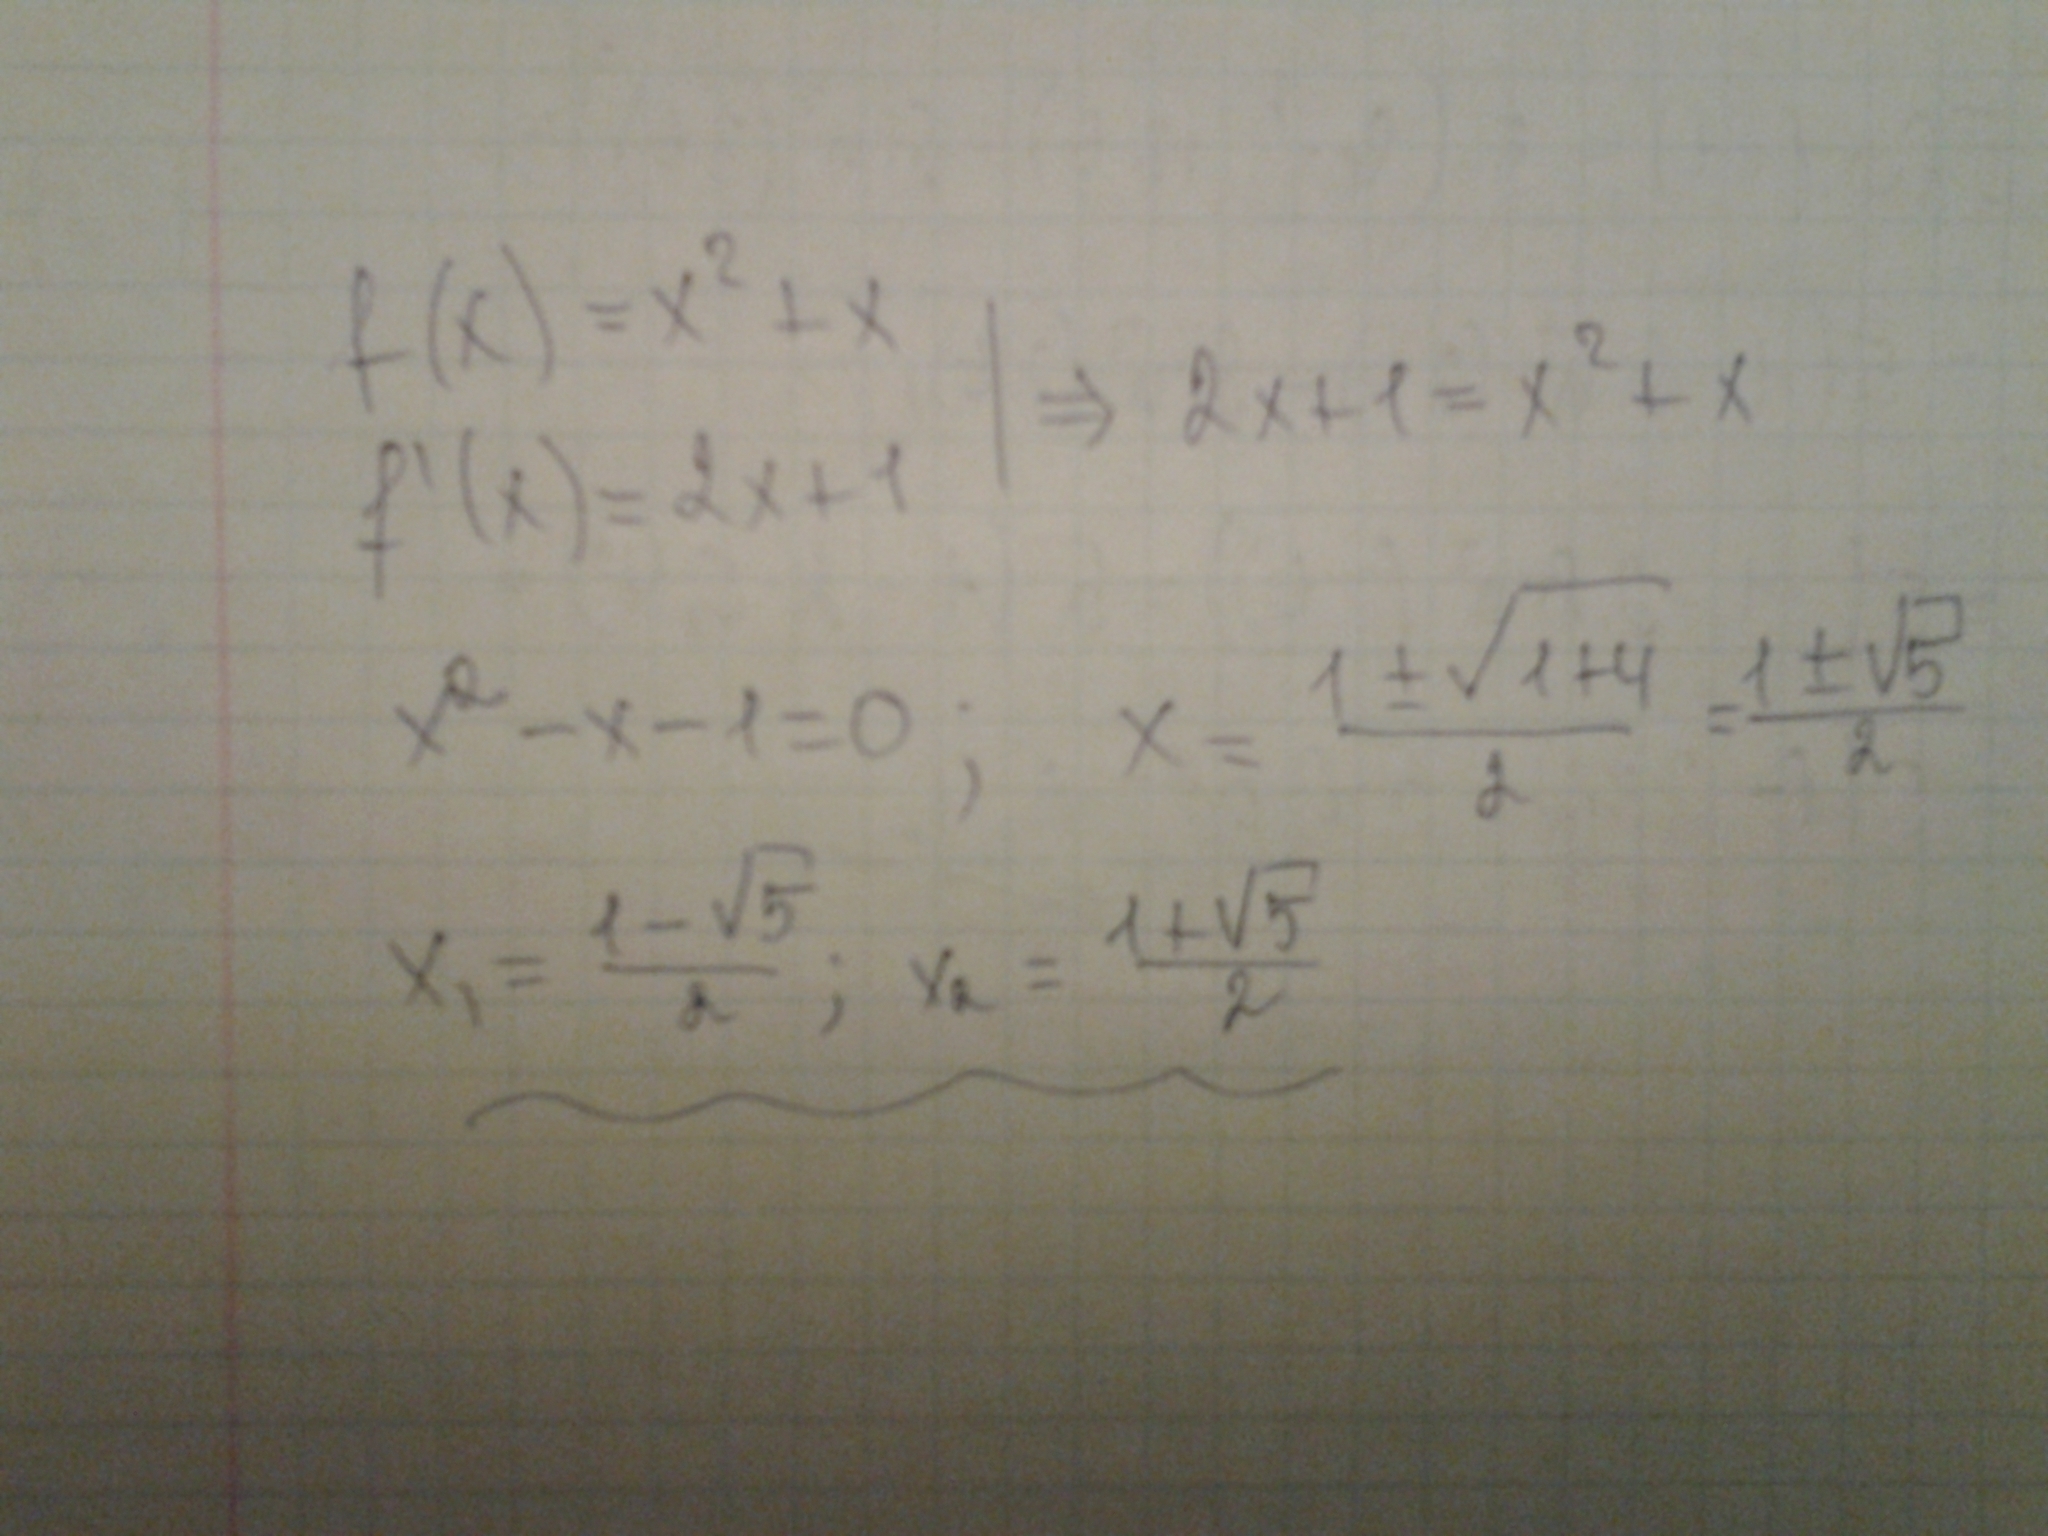 f(x) = x² + x
f'(x) = 2x+1 | ⇒ 2x+1 = x² + x
x² - x - 1 = 0 ; x = (1 ± √(1+4))/2 = (1 ± √5)/2
x₁ = (1-√5)/2 ; x₂ = (1+√5)/2